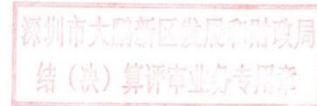 深圳市大鹏新区发展和财政局
结（决）算评审业务专用章